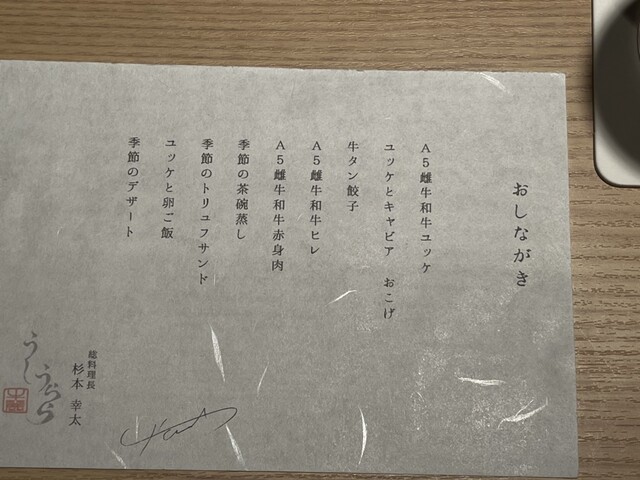 おしながき
A5雌牛和牛ユッケ
ユッケとキャビア　おこげ
牛タン餃子
A5雌牛和牛ヒレ
A5雌牛和牛赤身肉
季節の茶碗蒸し
季節のトリュフサンド
ユッケと卵ご飯
季節のデザート
総料理長
杉本 幸太
うしうらら